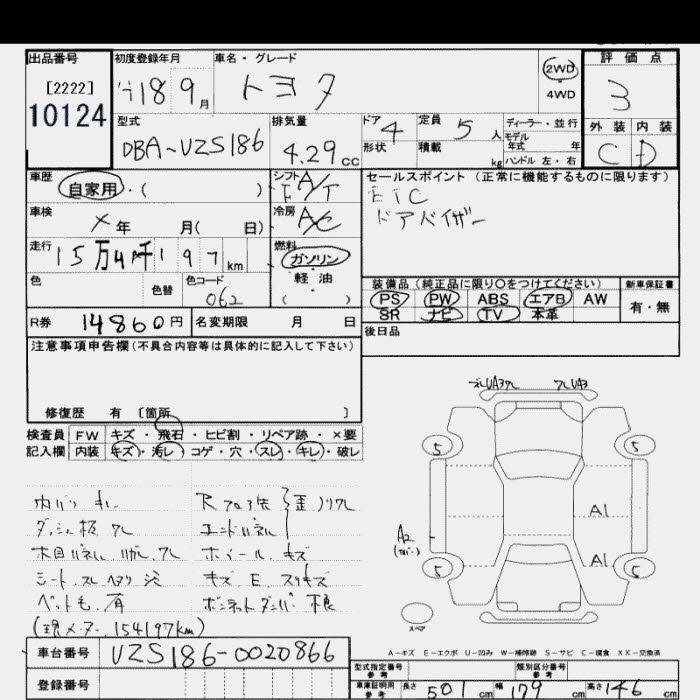 出品番号
[2222]
10124
初度登録年月
18 9 月
車名・グレード
トヨタ
2WD
4WD
評価点
3
外装 内装
C D
型式
DBA-UZS186
排気量
4.29 cc
ドア 4
形状
定員 5 人
積載 kg
ディーラー・並行
モデル
年式 年
ハンドル 左・右
車歴
自家用・( )
シフト
F A/T
セールスポイント (正常に機能するものに限ります)
ETC
ドアバイザー
車検
× 年 月( 日)
冷房
A/C
走行
15万4千197 km
燃料
ガソリン
軽油
( )
色
色替
色コード
062
装備品 (純正品に限り〇をつけてください)
新車保証書
PS PW ABS エアB AW
SR ナビ TV 本革
有・無
R券 14860円
名変期限 月 日
後日品
注意事項申告欄 (不具合内容等は具体的に記入して下さい)
修復歴 有 [箇所 ]
検査員
記入欄
FW キズ・飛石・ヒビ割・リペア跡・×要
内装 キズ・汚レ・コゲ・穴・スレ・キレ・破レ
ダッシュ板 ワレ
シート
ペット毛 有
(現メーター 154197km)
エンドパネル
ホイール キズ
キズ E スリキズ
5
5
5
5
A1
A1
A2
スペア
A-キズ E-エクボ U-凹み W-補修跡 S-サビ C-腐食 XX-交換済
車台番号 UZS186-0020866
登録番号
型式指定番号
参考
類別区分番号
参考
車庫証明用
参考
長さ 501 cm
幅 179 cm
高さ 146 cm